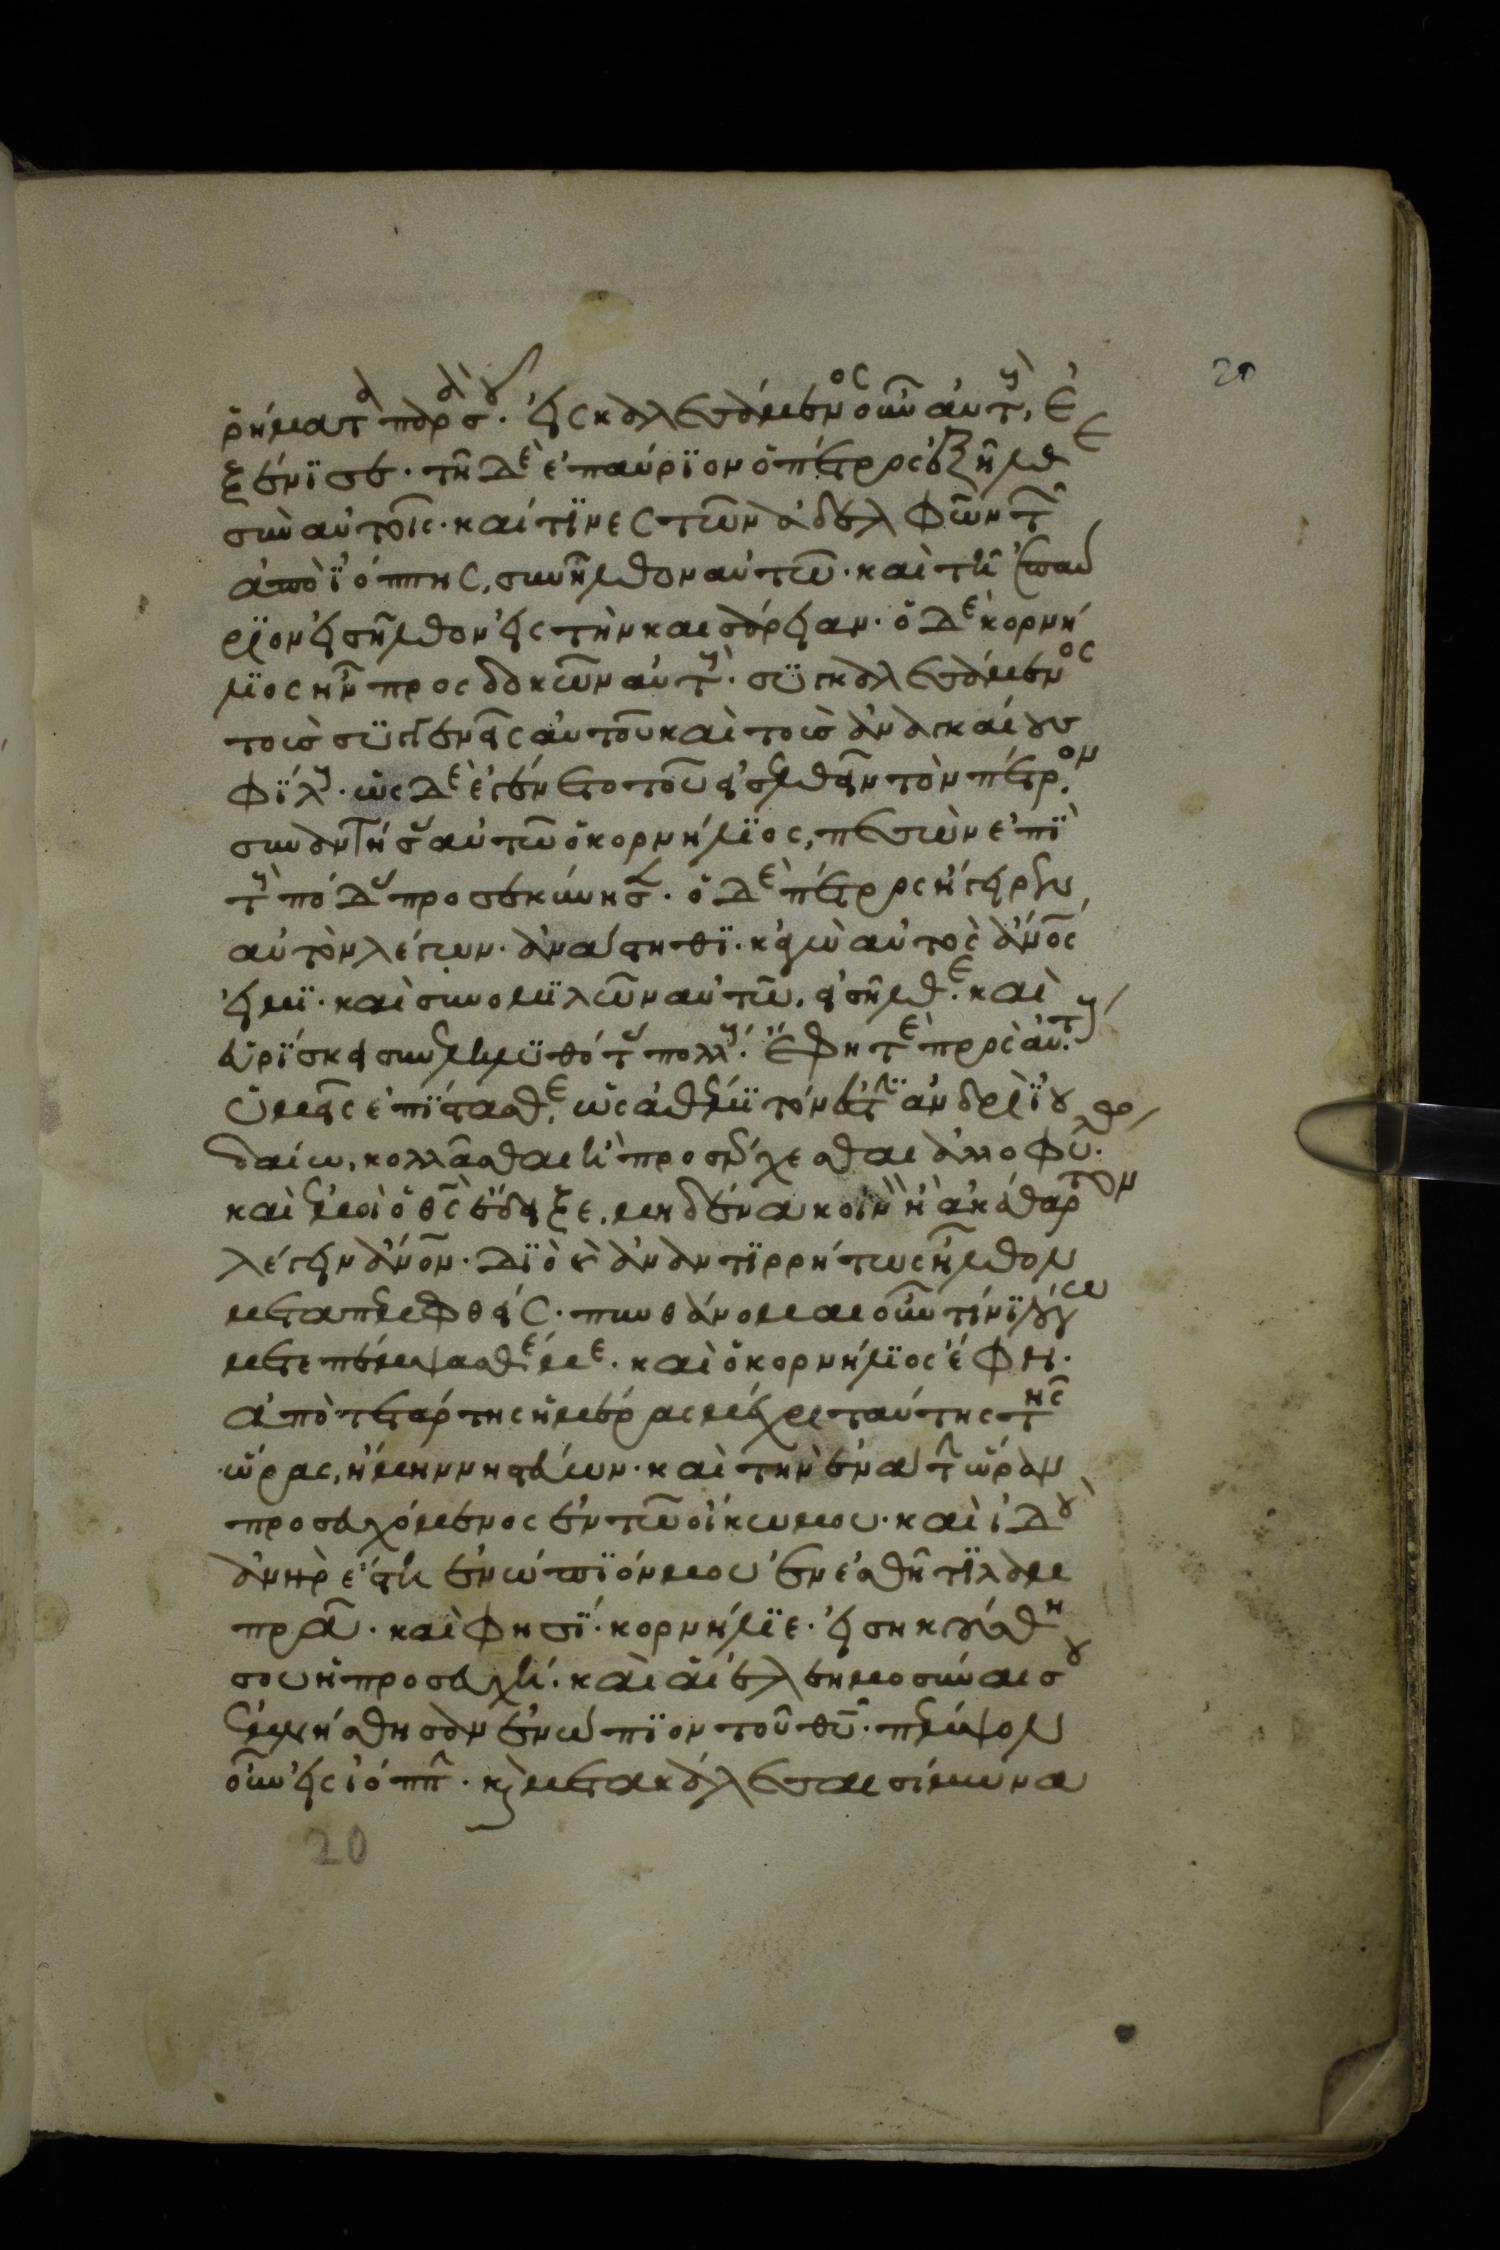 20
ῥήματα παρὰ σοῦ. εἰσκαλεσάμενος οὖν αὐτοὺς, ἐ
ξένϊσε. τῆ δὲ ἐπαύρϊον ὁ πέτρος ἐξῆλθε
σὺν αὐτοῖς. καί τϊνες τῶν ἀδελφῶν τῶν
ἀπὸ ϊόππης, συνῆλθον αὐτῶ. καὶ τῆ ἐπαύ
ρϊον εἰσῆλθον εἰς τὴν καισάρειαν. ὁ δὲ κορνή
λϊος ἦν προσδοκῶν αὐτοὺς. συγκαλεσάμενος
τοὺς συγγενεῖς αὐτοῦ καὶ τοὺς ἀναγκαίους
φϊλους. ὡς δὲ ἐγένετο τοῦ εἰσελθεῖν τὸν πέτρον.
συναντήσας αὐτῶ ὁ κορνήλϊος, πεσὼν ἐπϊ
τοὺς πόδας προσεκύνησεν. ὁ δὲ πέτρος ἤγειρεν
αὐτὸν λέγων. ἀνάστηθϊ. κἀγὼ αὐτὸς ἄνος
εἰμϊ. καὶ συνομϊλῶν αὐτῶ, εἰσῆλθε. καὶ
εὑρϊσκει συνεληλυθότας πολλούς. ἔφη τε πρὸς αὐτοὺς
ὑμεῖς ἐπϊστασθε, ὡς ἀθέμϊτόν ἐστϊν ἀνδρὶ ϊου
δαίω, κολλᾶσθαι ἢ προσέρχεσθαι ἀλλοφύλω.
καὶ ἐμοὶ ὁ θς ἔδειξε, μηδένα κοινὸν ἢ ἀκάθαρτον
λέγειν ἄνον. Δϊὸ καὶ ἀναντϊρρήτως ἦλθον
μεταπεμφθείς. πυνθάνομαι οὖν τίνϊ λόγω
μετεπέμψασθέ με. καὶ ὁ κορνήλϊος ἔφη.
ἀπὸ τετάρτης ἡμέρας μέχρι ταύτης τῆς
ὥρας, ἤμην νηστεύων. καὶ τὴν ἐνάτην ὥραν
προσευχόμενος ἐν τῶ οἴκω μου. καὶ ἰδοὺ
ἀνὴρ ἔστη ἐνώπϊόν μου ἐν ἐσθῆτϊ λαμ
πρᾶ. καὶ φησϊ. κορνήλϊε. εἰσηκούσθη
σου ἡ προσευχή. καὶ αἱ ἐλεημοσύναι σου
ἐμνήσθησαν ἐνώπϊον τοῦ θυ. πέμψον
οὖν εἰς ἰόππην. καὶ μετακάλεσαι σίμωνα
20